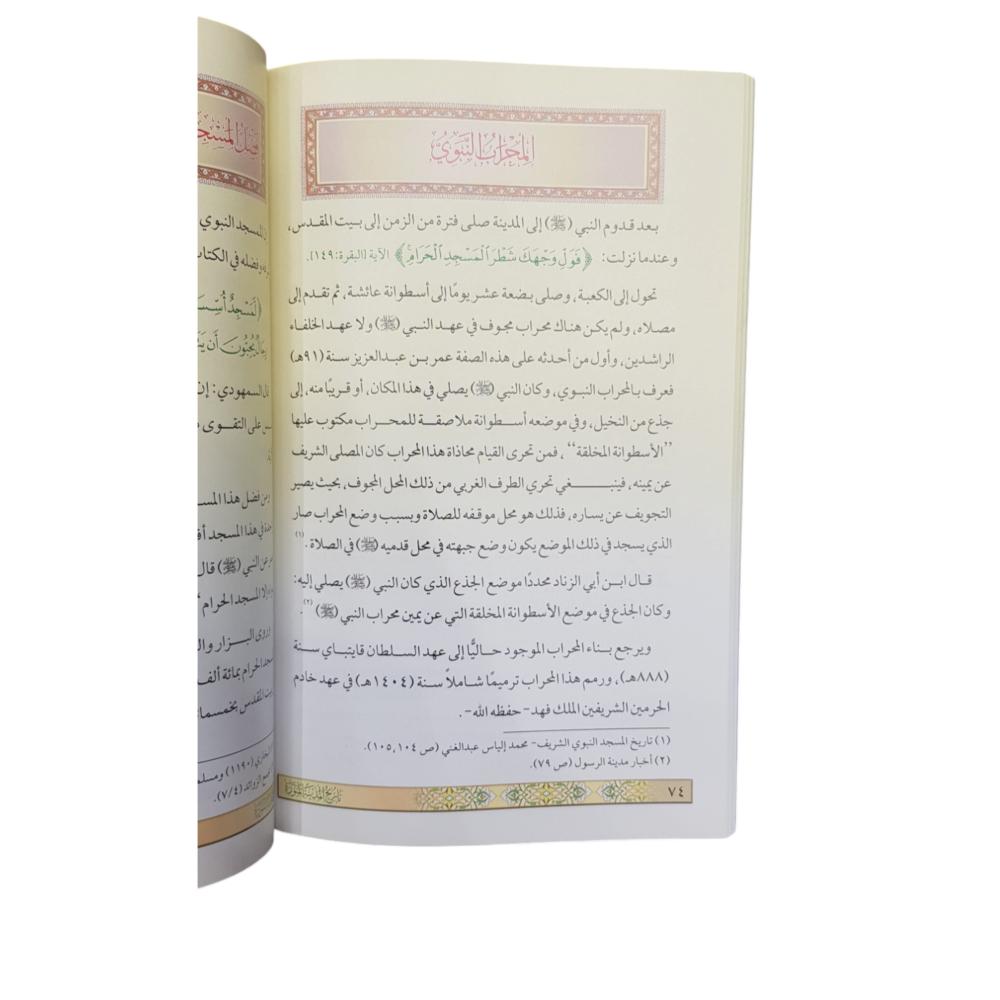 المحراب النبوي
بعد قدوم النبي (ﷺ) إلى المدينة صلى فترة من الزمن إلى بيت المقدس،
وعندما نزلت: ﴿فَوَلِّ وَجْهَكَ شَطْرَ ٱلْمَسْجِدِ ٱلْحَرَامِ﴾ الآية [البقرة: ١٤٩].
تحول إلى الكعبة، وصلى بضعة عشر يومًا إلى أسطوانة عائشة، ثم تقدم إلى
مصلاه، ولم يكن هناك محراب مجوف في عهد النبي (ﷺ) ولا عهد الخلفاء
الراشدين، وأول من أحدثه على هذه الصفة عمر بن عبدالعزيز سنة (٩١هـ)
فعرف بالمحراب النبوي، وكان النبي (ﷺ) يصلي في هذا المكان، أو قريبًا منه، إلى
جذع من النخيل، وفي موضعه أسطوانة ملاصقة للمحراب مكتوب عليها
“الأسطوانة المخلقة”، فمن تحرى القيام محاذاة هذا المحراب كان المصلى الشريف
عن يمينه، فينبغي تحري الطرف الغربي من ذلك المحل المجوف، بحيث يصير
التجويف عن يساره، فذلك هو محل موقفه للصلاة وبسبب وضع المحراب صار
الذي يسجد في ذلك الموضع يكون وضع جبهته في محل قدميه (ﷺ) في الصلاة.(١)
قال ابن أبي الزناد محددًا موضع الجذع الذي كان النبي (ﷺ) يصلي إليه:
وكان الجذع في موضع الأسطوانة المخلقة التي عن يمين محراب النبي (ﷺ)(٢).
ويرجع بناء المحراب الموجود حاليًّا إلى عهد السلطان قايتباي سنة
(٨٨٨هـ)، ورمم هذا المحراب ترميمًا شاملاً سنة (١٤٠٤هـ) في عهد خادم
الحرمين الشريفين الملك فهد- حفظه الله-.
(١) تاريخ المسجد النبوي الشريف- محمد إلياس عبدالغني (ص ١٠٤، ١٠٥).
(٢) أخبار مدينة الرسول (ص ٧٩).
٧٤
تاريخ المدينة المنورة
فضل المسجد
المسجد النبوي
وفضله في الكتاب
﴿لَمَسْجِدٌ أُسِّسَ
يُحِبُّونَ أَن
قال السمهودي: إن
على التقوى
ومن فضل هذا المسـ
في هذا المسجد
عن النبي (ﷺ) قال
إلا المسجد الحرام"
وروى البزار
الحرام بمائة ألف
المقدس بخمسمائة
(١١٩٠) ومسلم
الزوائد (٧/٤).